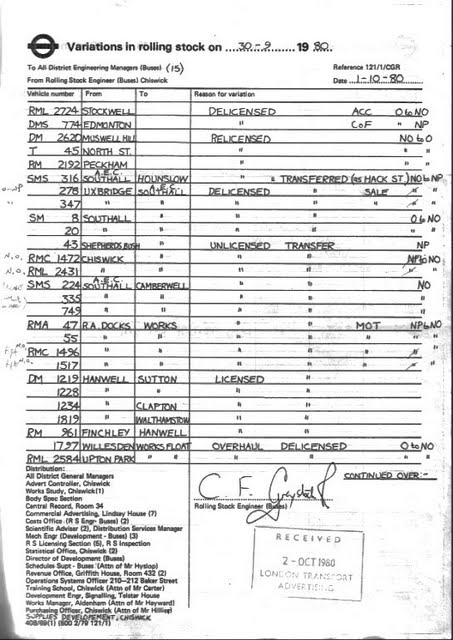 Variations in rolling stock on 30-9 1980.
To All District Engineering Managers (Buses) (15)
Reference 121/1/CGR
From Rolling Stock Engineer (Buses) Chiswick
Date 1-10-80
Vehicle number From To Reason for variation
RML 2724 STOCKWELL DELICENSED ACC O to NO
DMS 774 EDMONTON " CoF " NP
DM 2620 MUSWELL HILL RELICENSED NO to O
T 45 NORTH ST. " "
RM 2192 PECKHAM " "
SMS 316 A.E.C. SOUTHALL HOUNSLOW " & TRANSFERRED (as HACK ST.) NO to NP
278 UXBRIDGE A.E.C. SOUTHALL DELICENSED " SALE "
347 " " " " " "
SM 8 SOUTHALL " " " O to NO
20 " " " " "
43 SHEPHERDS BUSH " UNLICENSED TRANSFER NP
N.O. RMC 1472 CHISWICK " " " NP to NO
N.O. RML 2431 " " " " "
SMS 224 A.E.C. SOUTHALL CAMBERWELL " " NO
335 " " " " "
749 " " " " "
RMA 47 R.A. DOCKS WORKS " " MOT NP to NO
55 " " " " " "
RMC 1496 " " " " " "
1517 " " " " " "
DM 1219 HANWELL SUTTON LICENSED "
1228 " " " "
1234 " CLAPTON " "
1819 " WALTHAMSTOW " "
RM 961 FINCHLEY HANWELL " "
1797 WILLESDEN WORKS FLOAT OVERHAUL DELICENSED O to NO
RML 2584 UPTON PARK " " " " "
Distribution:
CONTINUED OVER:-
All District General Managers
Advert Controller, Chiswick
Works Study, Chiswick (1)
Body Spec Section
Central Record, Room 34
Commercial Advertising, Lindsay House (7)
Costs Office (R S Engr- Buses) (2)
Scientific Adviser (2), Distribution Services Manager
Mech Engr (Development - Buses) (3)
R S Licensing Section (5), R S Inspection
Statistical Office, Chiswick (2)
Director of Development (Buses)
Schedules Supt - Buses (Attn of Mr Hyslop)
Revenue Office, Griffith House, Room 432 (2)
Operations Systems Officer 210-212 Baker Street
Training School, Chiswick (Attn of Mr Carter)
Development Engr, Signalling, Telstar House
Works Manager, Aldenham (Attn of Mr Hayward)
Purchasing Officer, Chiswick (Attn of Mr Hillier)
SUPPLIES DEVELOPEMENT, CHISWICK
408/69(1) (800 2/79 121/1)
C F
Rolling Stock Engineer (Buses)
RECEIVED
2-OCT 1980
LONDON TRANSPORT
ADVERTISING